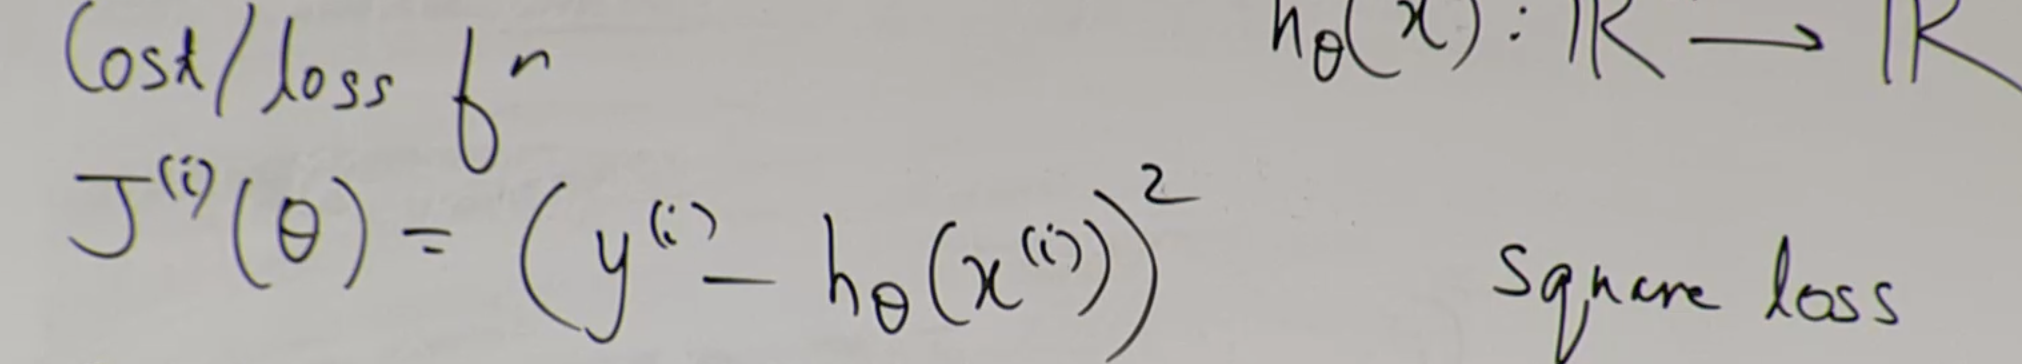 Cost/loss fⁿ
h_θ(x) : ℝ → ℝ
J⁽ⁱ⁾(θ) = (y⁽ⁱ⁾ - h_θ(x⁽ⁱ⁾))²
square loss